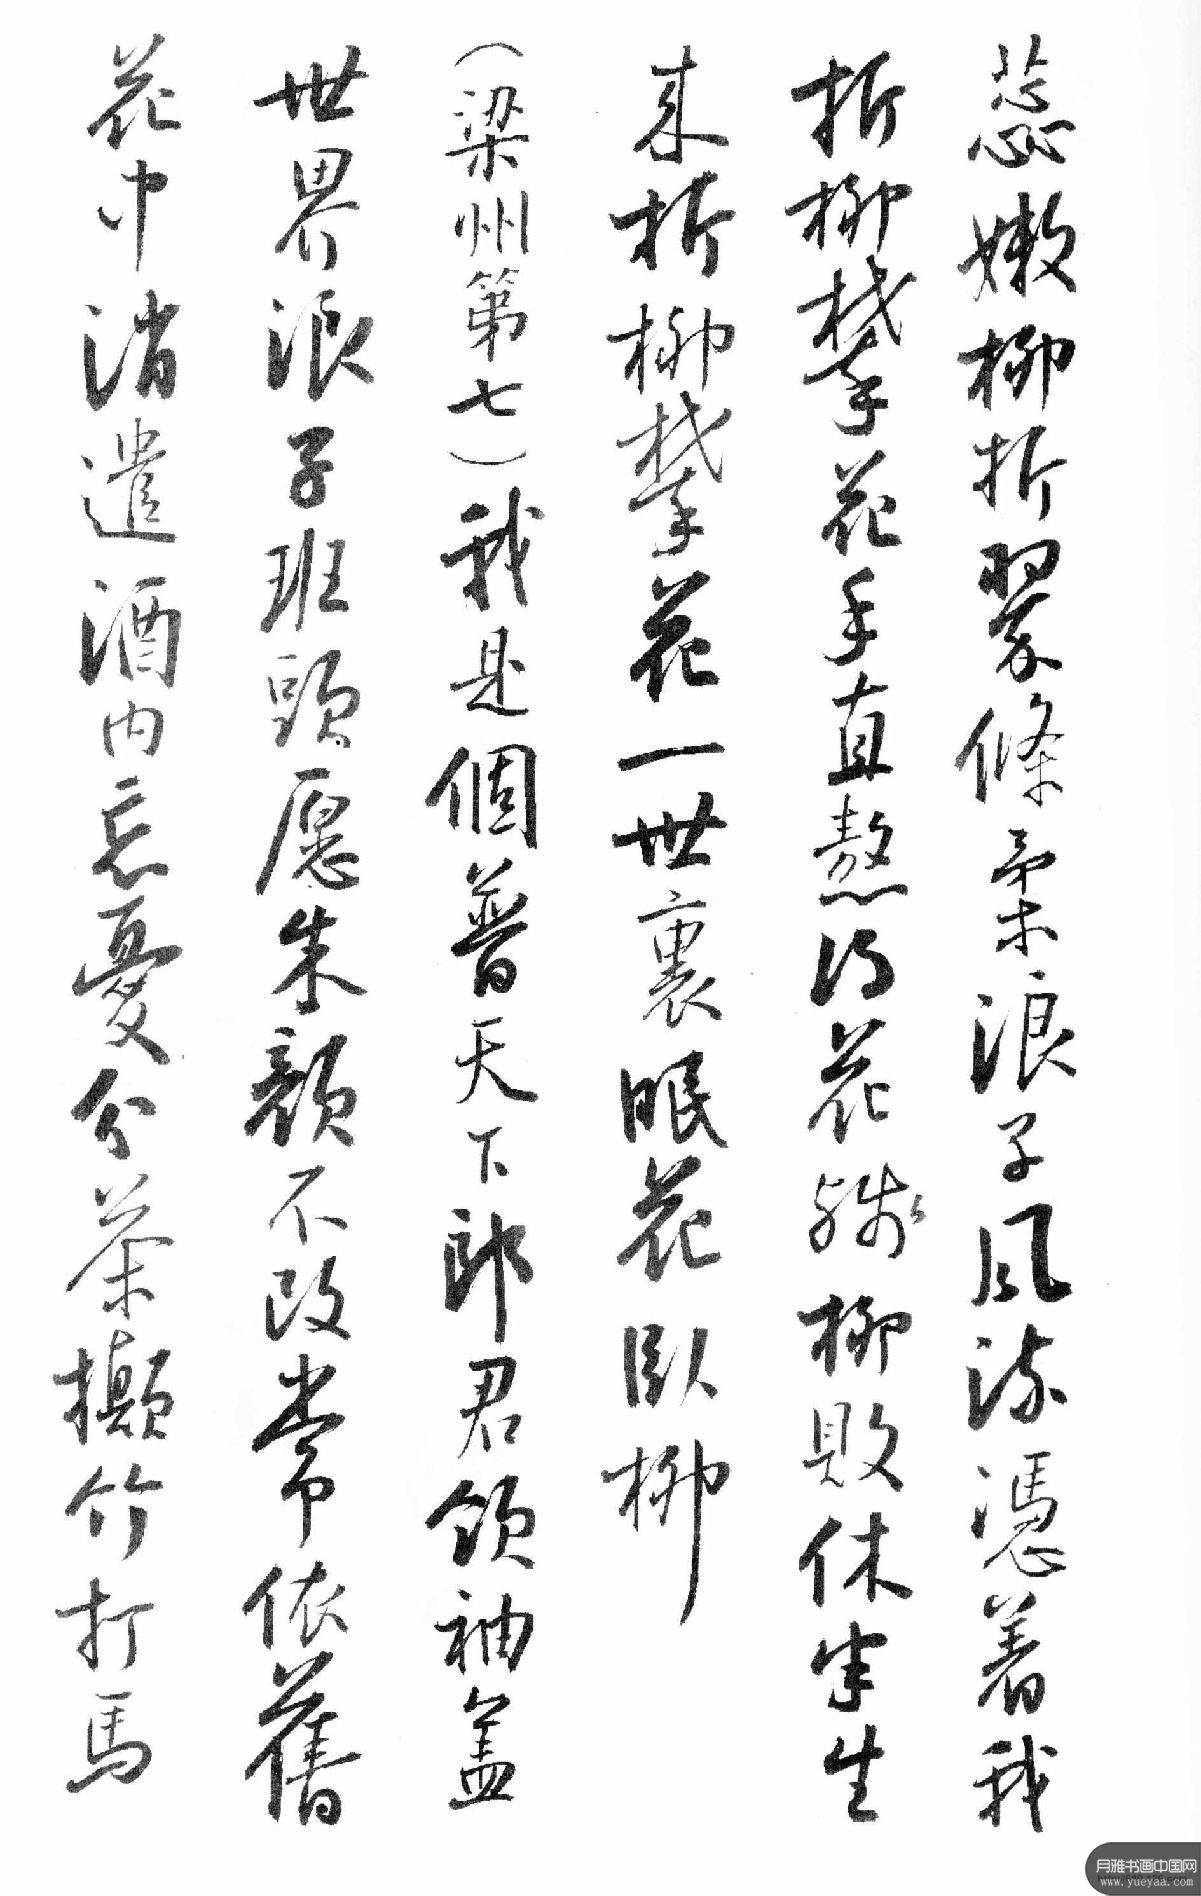 蕊嫩柳折翠條柔浪子風流憑着我
折柳攀花手直熬得花殘柳敗休半生
來折柳攀花一世裏眠花臥柳
（梁州第七）我是個普天下郎君領袖蓋
世界浪子班頭愿朱顏不改常依舊
花中消遣酒內忘憂分茶攧竹打馬
月雅书画中国网
www.yueyaa.com